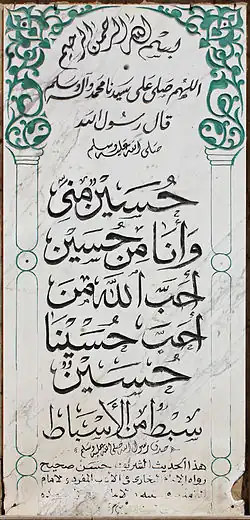 بسم الله الرحمن الرحيم
اللهم صلي على سيدنا محمد وآله وسلم
قال رسول الله
صلى الله عليه وسلم
حُسَين مِنّي
وَأنَا مِن حُسَين
أَحَبَّ اللهُ مَن
أَحَبَّ حُسَيْنَا
حُسَين
سِبط مِنَ الأَسبَاط
صدق رسول الله صلى الله عليه وسلم
هذا الحديث الشريف حسن صحيح
رواه الإمام البخاري في الأدب المفرد والإمام